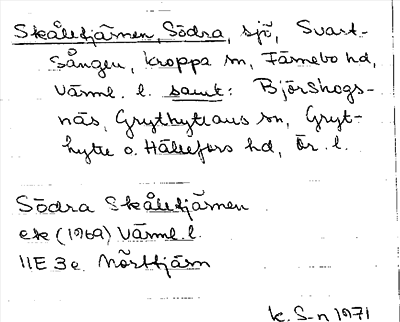 Skålltjärnen, Södra, sjö, Svart-
sången, Kroppa sn, Färnebo hd,
Värml. l. samt: Björskogs-
näs, Grythyttans sn, Gryt-
hytte o. Hällefors hd, Ör. l.
Södra Skålltjärnen
ek (1969) Värml. l.
11E 3e Norrtjärn
K. S-n 1971